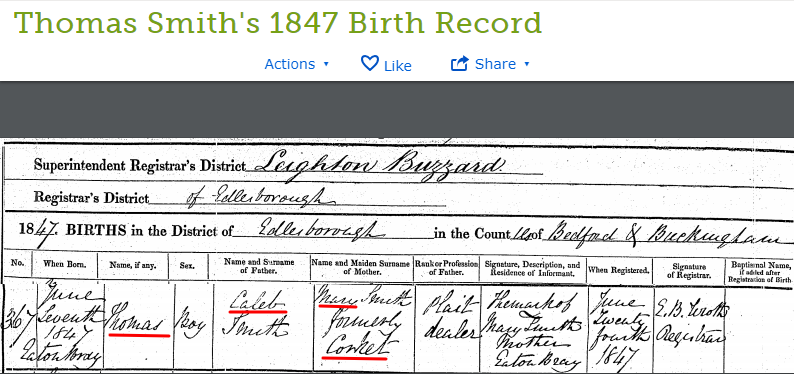 Thomas Smith's 1847 Birth Record
Actions Like Share
Superintendent Registrar's District Leighton Buzzard
Registrar's District of Edlesborough
1847. BIRTHS in the District of Edlesborough in the Counties of Bedford & Buckingham
No. When Born. Name, if any. Sex. Name and Surname of Father. Name and Maiden Surname of Mother. Rank or Profession of Father. Signature, Description, and Residence of Informant. When Registered. Signature of Registrar. Baptismal Name, if added after Registration of Birth.
367
June
Seventh
1847
Eaton Bray
Thomas
Boy
Caleb
Smith
Mary Smith
formerly
Corket
Plait
dealer
The mark of
Mary Smith
Mother
Eaton Bray
June
Twenty
fourth
1847
E.B. Wroth
Registrar